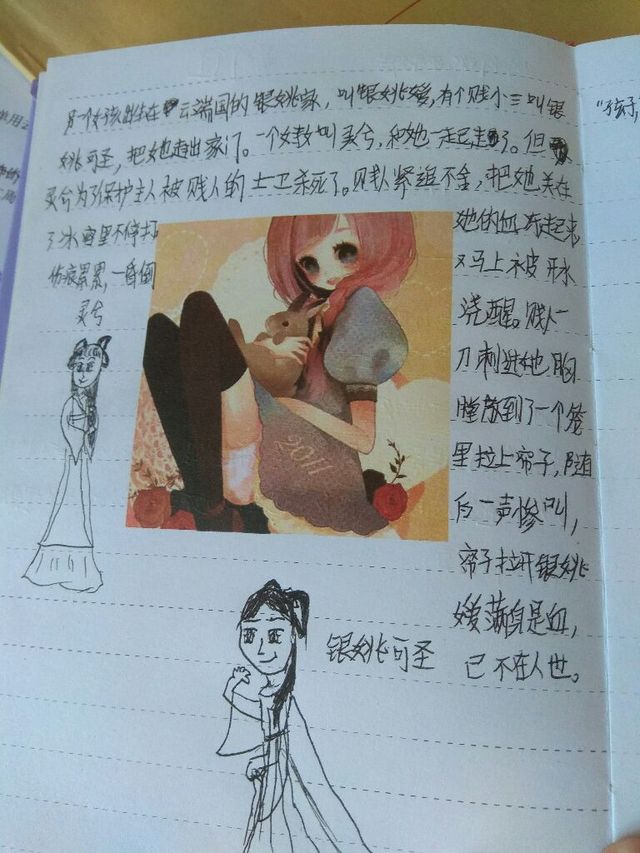 另一个女孩出生在云端国的银姚家，叫银姚嫒，有个贱小三叫银
姚可圣，把她赶出家门。一个婢女叫灵兮，和她一起走了。但
灵兮为了保护主人被贱人的士卫杀死了。贱人紧追不舍，把她关在
了冰窖里不停打
伤痕累累，一昏倒
她的血冻起来
又马上被开水
浇醒。贱人一
刀刺进她胸
膛放到了一个笼
里拉上帘子，随
后一声惨叫，
帘子拉开银姚
嫒满身是血，
已不在人世。
灵兮
2011
银姚可圣
"孩子，